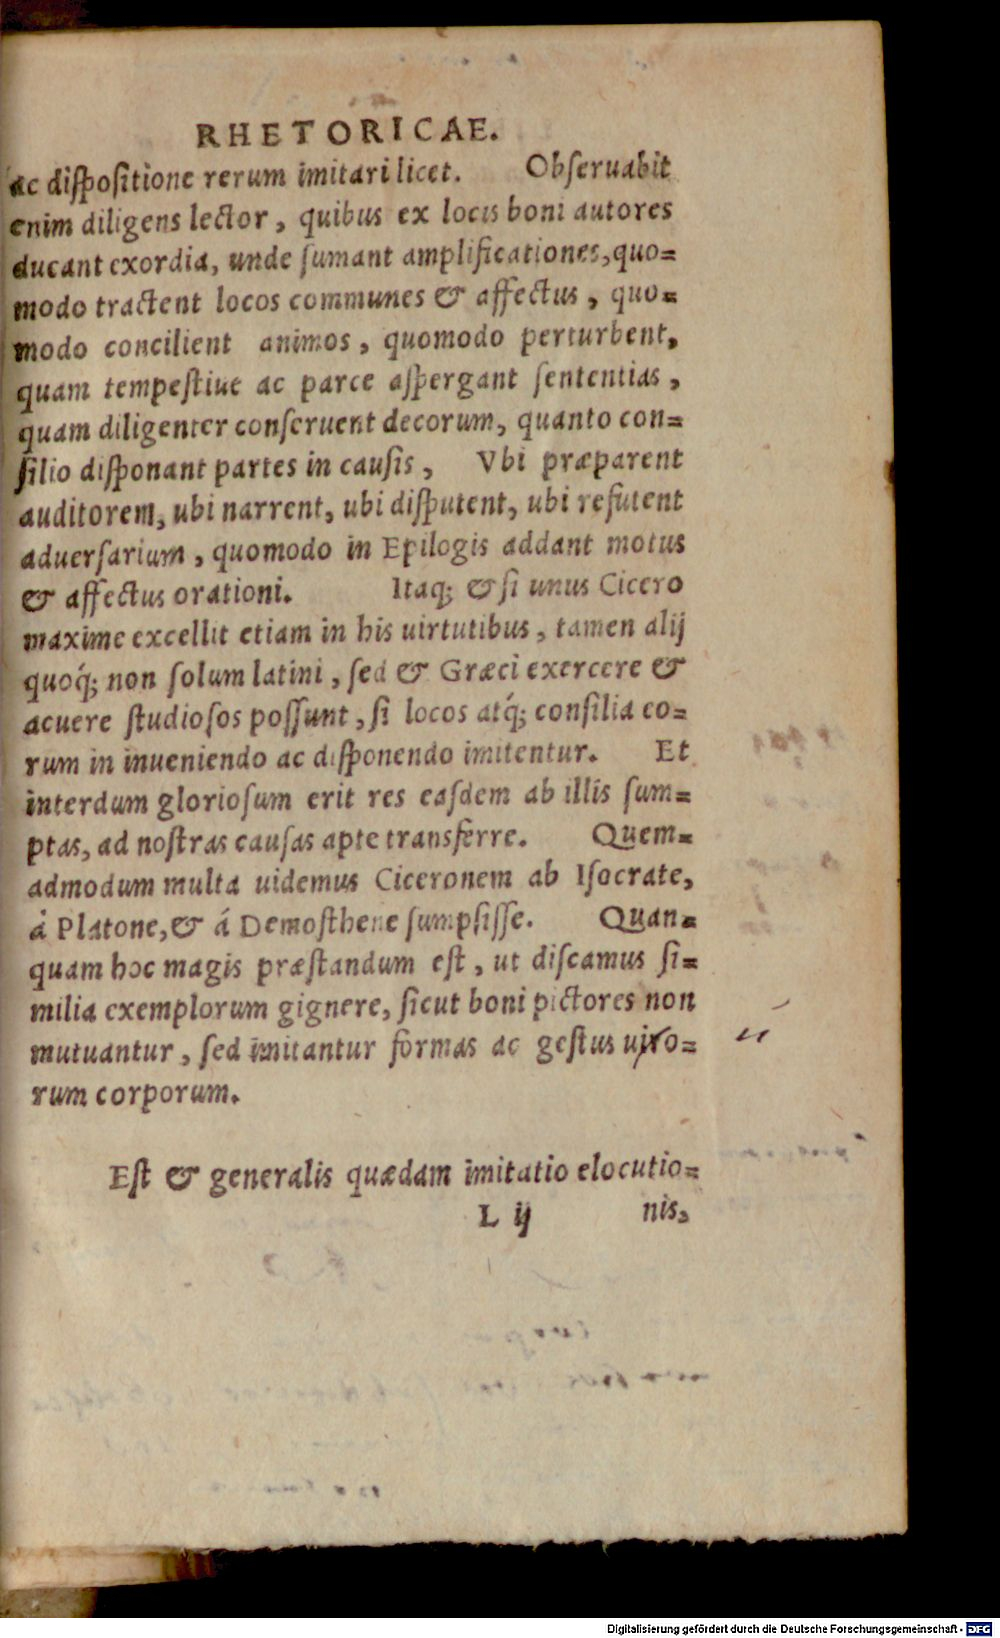 RHETORICAE.
ac diſpoſitione rerum imitari licet. Obſeruabit
enim diligens lector, quibus ex locis boni autores
ducant exordia, unde ſumant amplificationes, quo=
modo tractent locos communes & affectus, quo=
modo concilient animos, quomodo perturbent,
quam tempeſtiue ac parce aſpergant ſententias,
quam diligenter conſeruent decorum, quanto con=
ſilio diſponant partes in cauſis, Vbi præparent
auditorem, ubi narrent, ubi diſputent, ubi refutent
aduerſarium, quomodo in Epilogis addant motus
& affectus orationi. Itaq; & ſi unus Cicero
maxime excellit etiam in his uirtutibus, tamen alij
quoq́; non ſolum latini, ſed & Græci exercere &
acuere ſtudioſos poſſunt, ſi locos atq́; conſilia eo=
rum in inueniendo ac diſponendo imitentur. Et
interdum glorioſum erit res eaſdem ab illis ſum=
ptas, ad noſtras cauſas apte transferre. Quem=
admodum multa uidemus Ciceronem ab Iſocrate,
á Platone, & á Demoſthene ſumpſiſſe. Quan=
quam hoc magis præſtandum eſt, ut diſcamus ſi=
milia exemplorum gignere, ſicut boni pictores non
mutuantur, ſed imitantur formas ac geſtus uiro=
rum corporum.
Eſt & generalis quædam imitatio elocutio=
L ij nis,
Digitalisierung gefördert durch die Deutsche Forschungsgemeinschaft - DFG